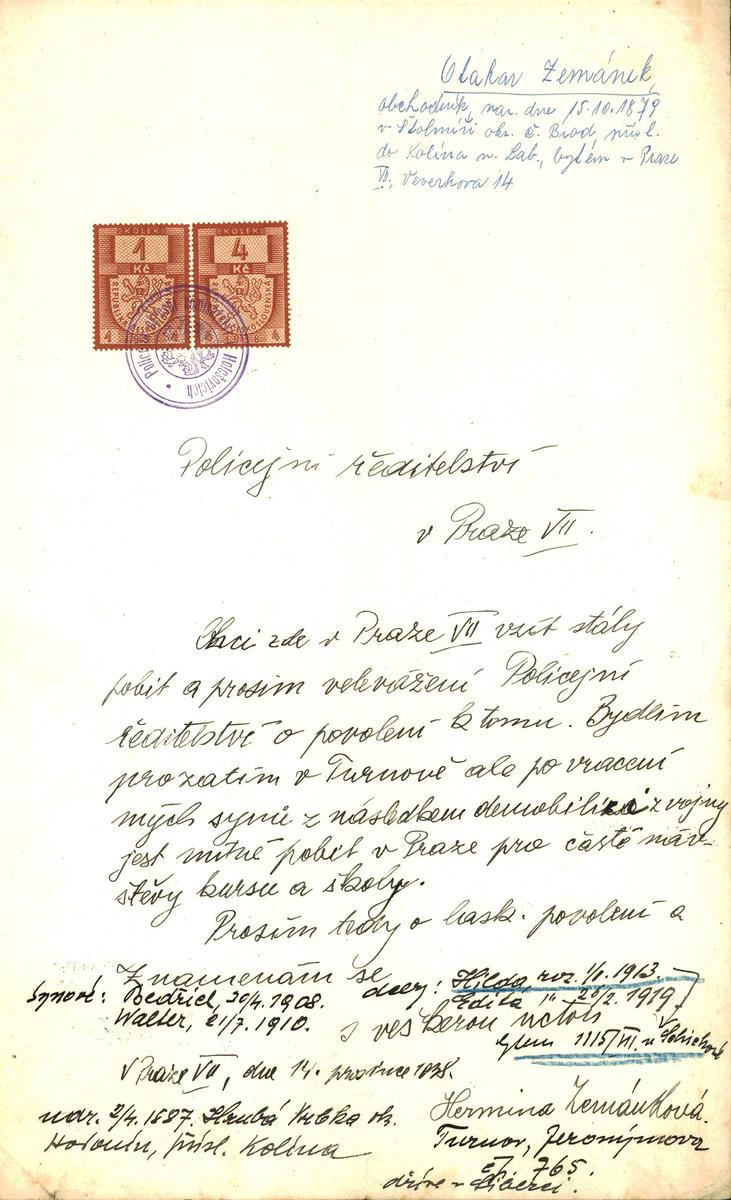 Otakar Zemánek,
obchodník, nar. dne 15.10.1879
v Štolmíři okr. č. Brod, přísl.
do Kolína n. Lab., bytem v Praze
VII, Veverkova 14
KOLEK 1 Kč
KOLEK 4 Kč
REPUBLIKA ČESKOSLOVENSKÁ
Policejní ředitelství
v Praze VII.
Chci zde v Praze VII vzít stálý
pobit a prosím velevážení Policejní
ředitelství o povolení k tomu. Bydlím
prozatím v Turnově ale po vracení
mých synů z následkem demobilizaci z vojny
jest nutné pobit v Praze pro časté náv-
štěvy kursu a školy.
Prosím tedy o lask. povolení a
Znamenám se
synové: Bedřich, 20/4. 1908. dcery: Hylda roz. 1913.
Walter, 21/7. 1910. Edita " 20/2. 1919
s veškerou úctou
bytem 1115/VII. u
V Praze VII, dne 14. prosince 1938.
nar. 2/4. 1887. Hrubá Vrbka ok.
Hodonín, přísl. Kolína
Hermina Zemánková.
Turnov, Jeronýmova
čp. 765.
dříve v Liberci.